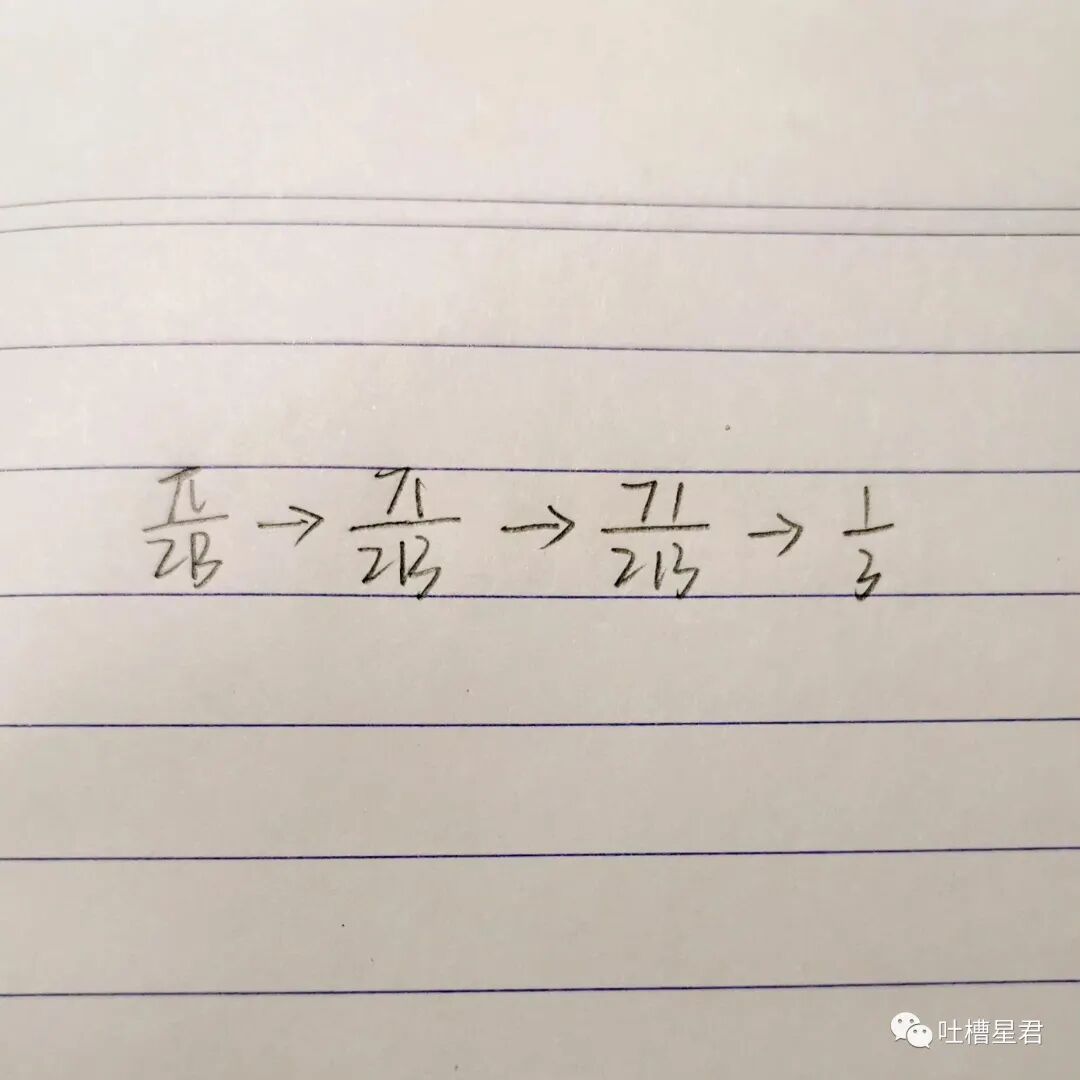 π/2B → 71/2B → 71/213 → 1/3
吐槽星君